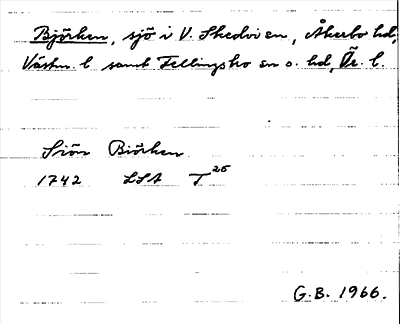 Björken, sjö i V. Skedvi sn, Åkerbo hd,
Västm. l. samt Fellingsbro sn o. hd, Ör. l.
Siön Biörken
1742 LSA T 26
G.B. 1966.